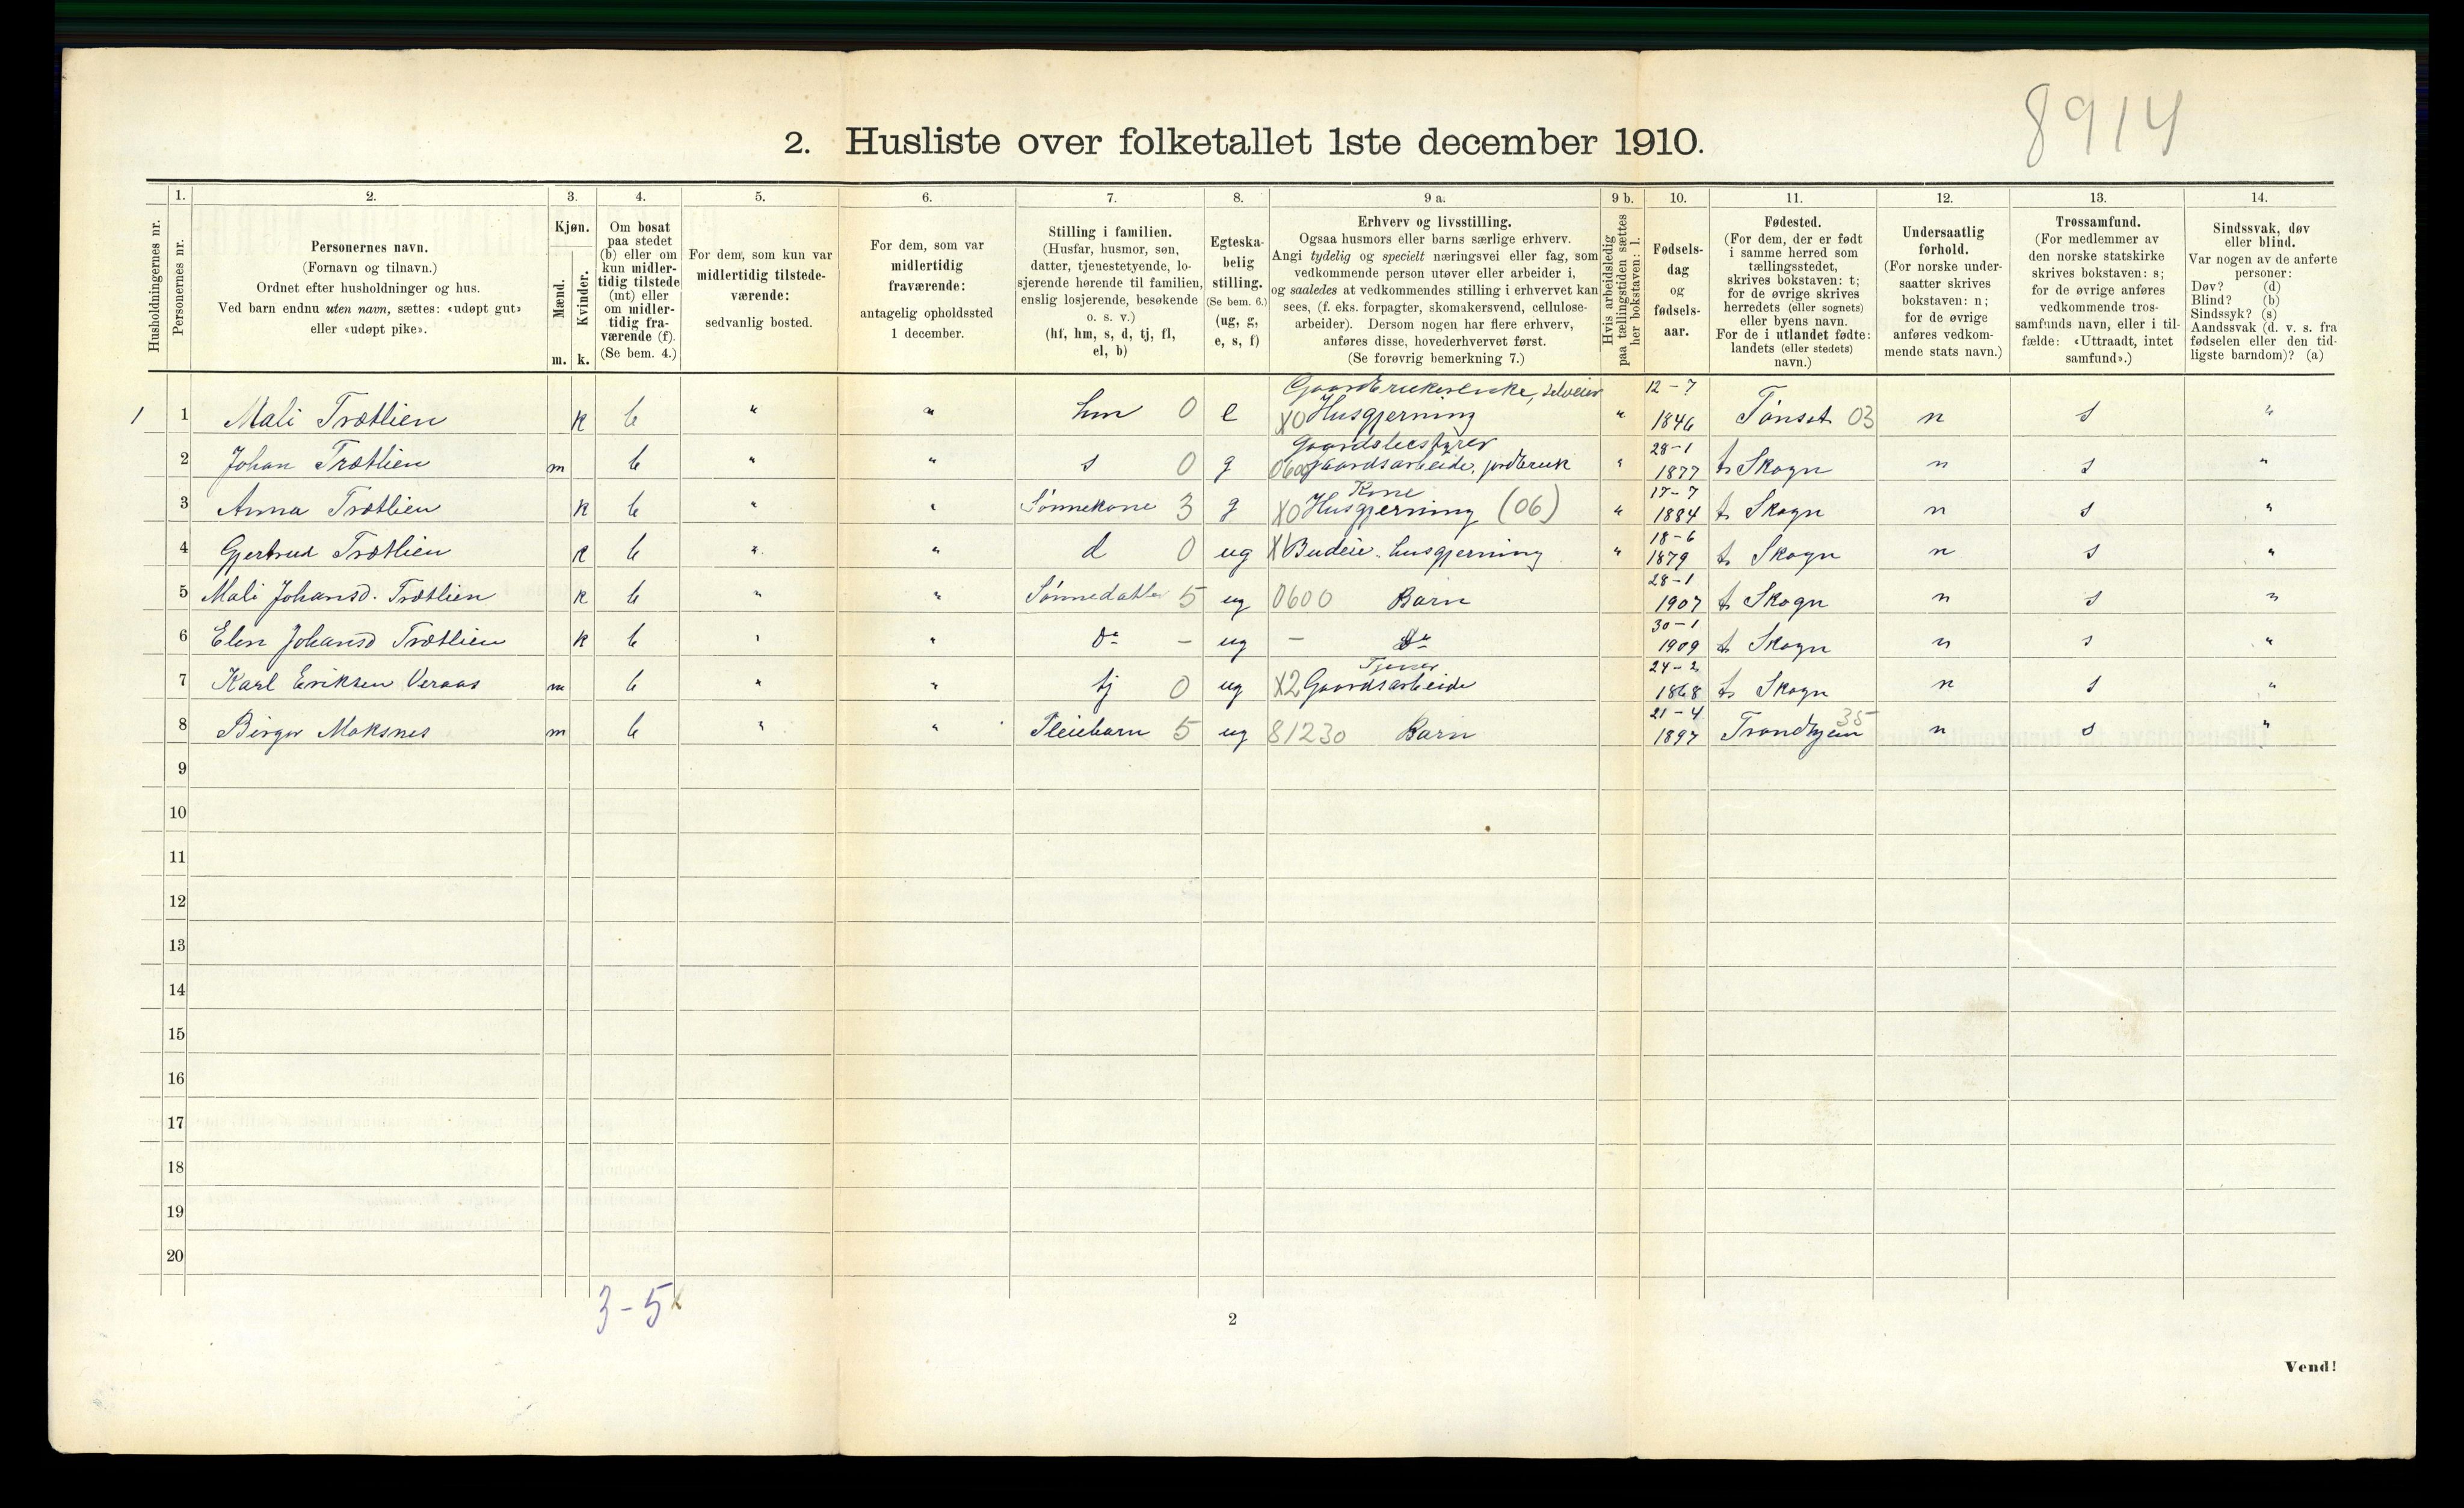 8914
2. Husliste over folketallet 1ste december 1910.
Husholdningernes nr.
1.
Personernes nr.
2.
Personernes navn.
(Fornavn og tilnavn.)
Ordnet efter husholdninger og hus.
Ved barn endnu uten navn, sættes: «udøpt gut»
eller «udøpt pike».
3.
Kjøn.
Mænd.
Kvinder.
m. k.
4.
Om bosat
paa stedet
(b) eller om
kun midler-
tidig tilstede
(mt) eller
om midler-
tidig fra-
værende (f).
(Se bem. 4.)
5.
For dem, som kun var
midlertidig tilstede-
værende:
sedvanlig bosted.
6.
For dem, som var
midlertidig
fraværende:
antagelig opholdssted
1 december.
7.
Stilling i familien.
(Husfar, husmor, søn,
datter, tjenestetyende, lo-
sjerende hørende til familien,
enslig losjerende, besøkende
o. s. v.)
(hf, hm, s, d, tj, fl,
el, b)
8.
Egteska-
belig
stilling.
(Se bem. 6.)
(ug, g,
e, s, f)
9 a.
Erhverv og livsstilling.
Ogsaa husmors eller barns særlige erhverv.
Angi tydelig og specielt næringsvei eller fag, som
vedkommende person utøver eller arbeider i,
og saaledes at vedkommendes stilling i erhvervet kan
sees, (f. eks. forpagter, skomakersvend, cellulose-
arbeider). Dersom nogen har flere erhverv,
anføres disse, hovederhvervet først.
(Se forøvrig bemerkning 7.)
9 b.
Hvis arbeidsledig
paa tællingstiden sættes
her bokstaven: l.
10.
Fødsels-
dag
og
fødsels-
aar.
11.
Fødested.
(For dem, der er født
i samme herred som
tællingsstedet,
skrives bokstaven: t;
for de øvrige skrives
herredets (eller sognets)
eller byens navn.
For de i utlandet fødte:
landets (eller stedets)
navn.)
12.
Undersaatlig
forhold.
(For norske under-
saatter skrives
bokstaven: n;
for de øvrige
anføres vedkom-
mende stats navn.)
13.
Trossamfund.
(For medlemmer av
den norske statskirke
skrives bokstaven: s;
for de øvrige anføres
vedkommende tros-
samfunds navn, eller i til-
fælde: «Uttraadt, intet
samfund».)
14.
Sindssvak, døv
eller blind.
Var nogen av de anførte
personer:
Døv? (d)
Blind? (b)
Sindssyk? (s)
Aandssvak (d. v. s. fra
fødselen eller den tid-
ligste barndom)? (a)
Gaardbrukerenke, selveier 12-7
1 1 Mali Trætlien k b " " hm 0 e X0 Husgjerning " 1846 Tønset 03 n s "
Gaardsbestyrer 28-1
2 Johan Trætlien m b " " s 0 g 0600 Gaardsarbeide, jordbruk " 1877 t Skogn n s "
Kone 17-7
3 Anna Trætlien k b " " Sønnekone 3 g X0 Husgjerning (06) " 1884 t Skogn n s "
18-6
4 Gjertrud Trætlien k b " " d 0 ug X1 Budeie, husgjerning " 1879 t Skogn n s "
28-1
5 Mali Johansd. Trætlien k b " " Sønnedatter 5 ug 0600 Barn 1907 t Skogn n s "
30-1
6 Elen Johansd Trætlien k b " " do - ug - do 1909 t Skogn n s "
Tjener 24-2
7 Karl Eriksen Veraas m b " " tj 0 ug X2 Gaardsarbeide 1868 t Skogn n s "
21-4 35
8 Birger Moksnes m b " " Pleiebarn 5 ug 81230 Barn 1897 Trondhjem n s "
9
10
11
12
13
14
15
16
17
18
19
20
3-5
2
Vend!